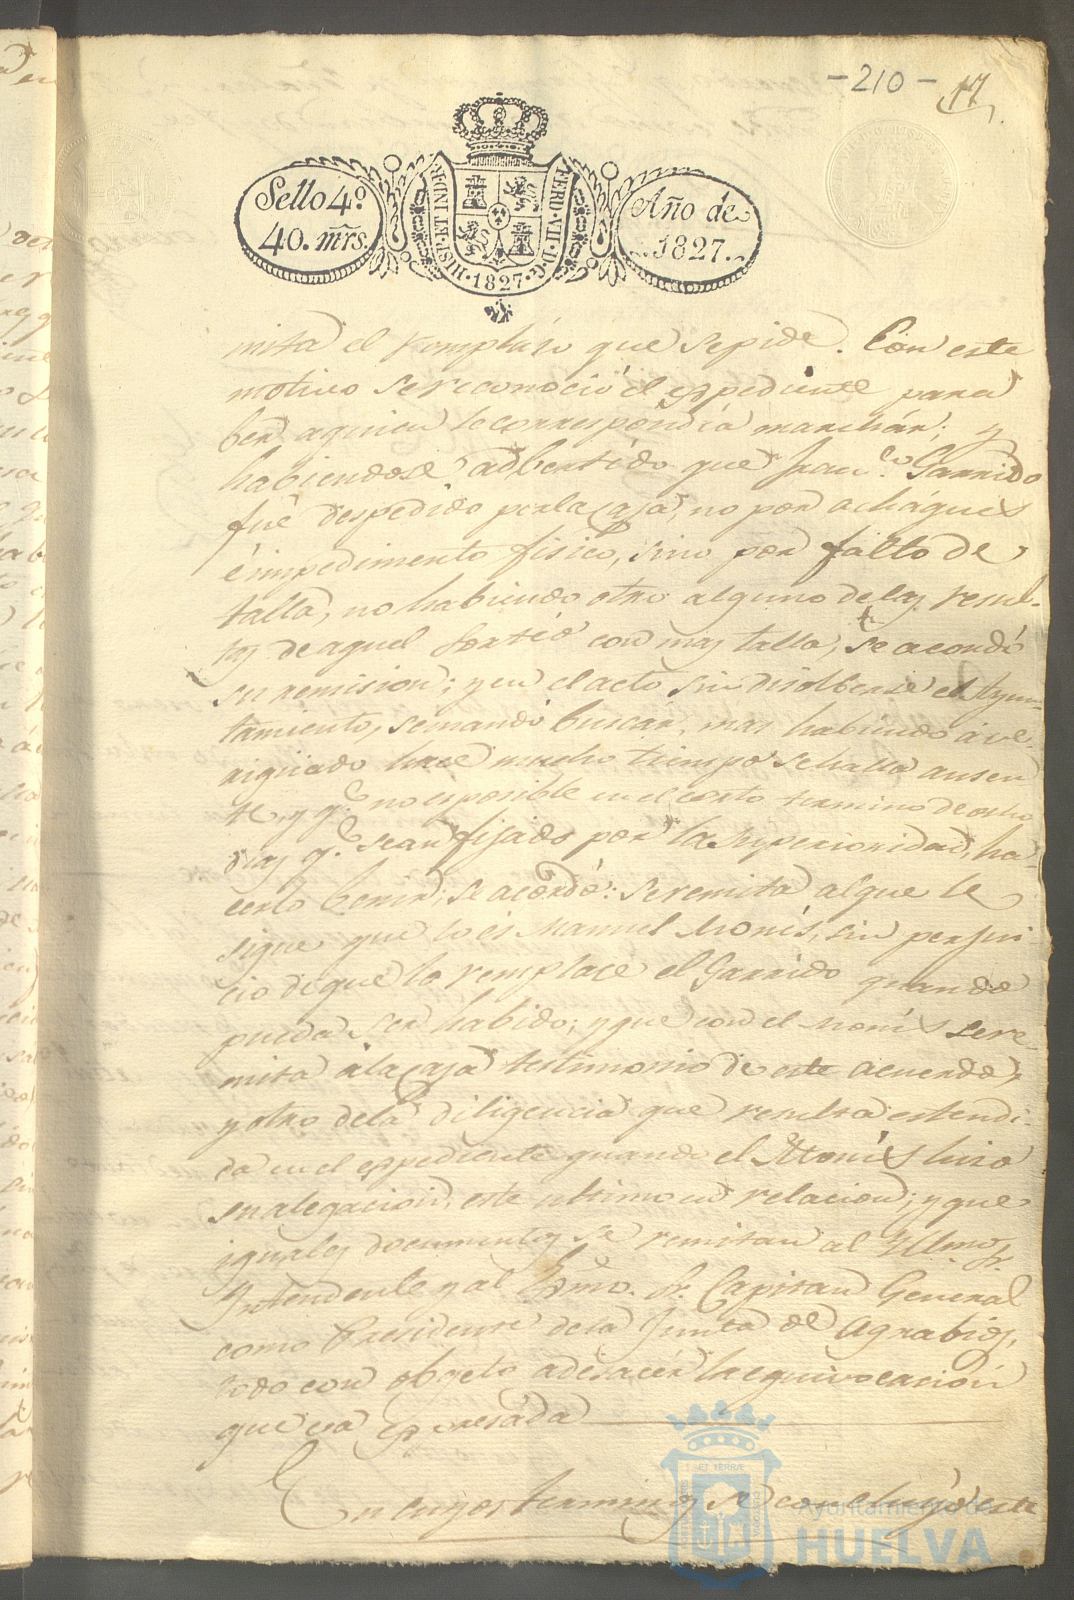 - 210 - 17
Sello 4º
40. mrs.
HISP. ET IND. R. FERD. VII. D. G.
1827
Año de
1827.
mita el remplazo que sepide. Con este
motivo sereconoció el espediente para
ber aquien lecorrespondía marchár; y
habiendose adbertido que Fran.co Garrido
fué despedido porlacaja, no por achâques
é impedimento fisico, sino por falto de
talla, no habiendo otro alguno delas resul-
tas deaquel sortéo con mas talla, se acordó
su remision; y en el acto sin disolberse el Ayun-
tamiento, semandó buscar, mas habiendo ave-
riguado hace mucho tiempo sehalla ausen
te, y q.e no esposible en el corto termino de ocho
dias q.e sean fijado por la Superioridad, ha
cerlo benir; se acordó: seremita alque le
sigue que lo és Manuel Monís, sin perjui-
cio deque lo remplace el Garrido quando
pueda ser habido; yque con el Monís sere-
mita álacaja testimonio de este acuerdo,
y otro dela diligencia que resulta estendi-
da en el espediente quando el Monís hizo
sualegacion, este ultimo en relacion; y que
iguales documentos se remitan al Yllmo. Sr.
Yntendente y al Esmo. Sr. Capitan General
como Presidente dela Junta de Agrabios,
todo con objeto adesacér laequivocación
que ba espresada
En cuyos terminos se concluyó este
Ayuntamiento de
HUELVA